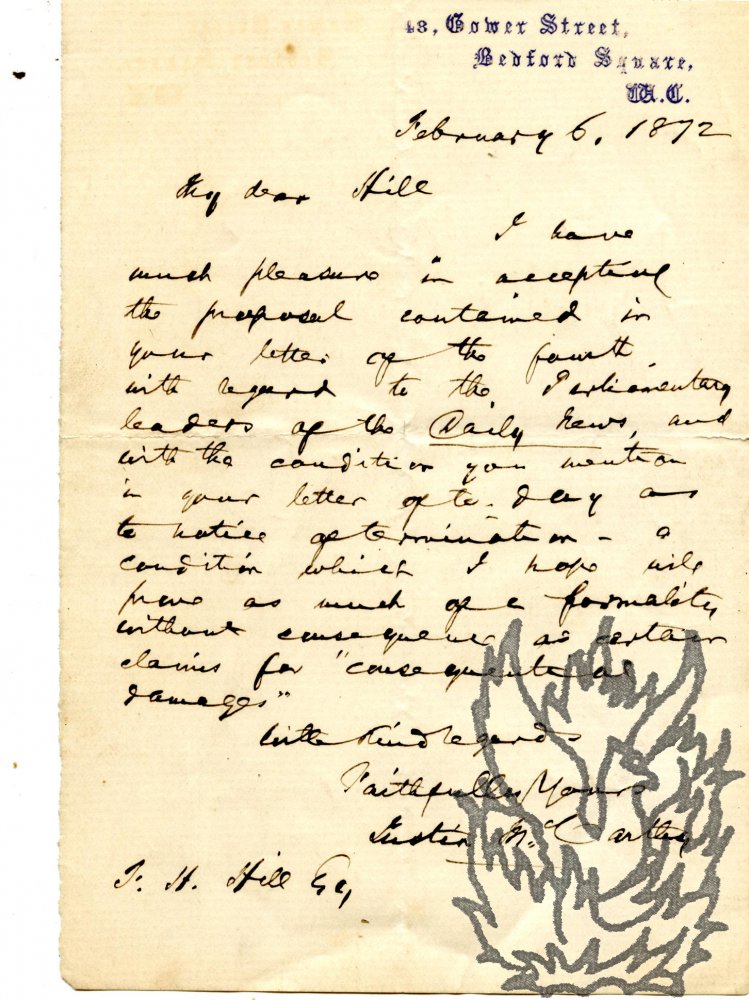 48, Gower Street,
Bedford Square,
W.C.
February 6, 1872
My dear Hill
I have
much pleasure in accepting
the proposal contained in
your letter of the fourth
with regard to the Parliamentary
leaders of the Daily News, and
with the condition you mention
in your letter of to-day as
to notice of termination - a
condition which I hope will
prove as much of a formality
without consequence as certain
claims for "consequential
damages"
With kind regards
Faithfully Yours
Justin McCarthy
F. H. Hill Esq